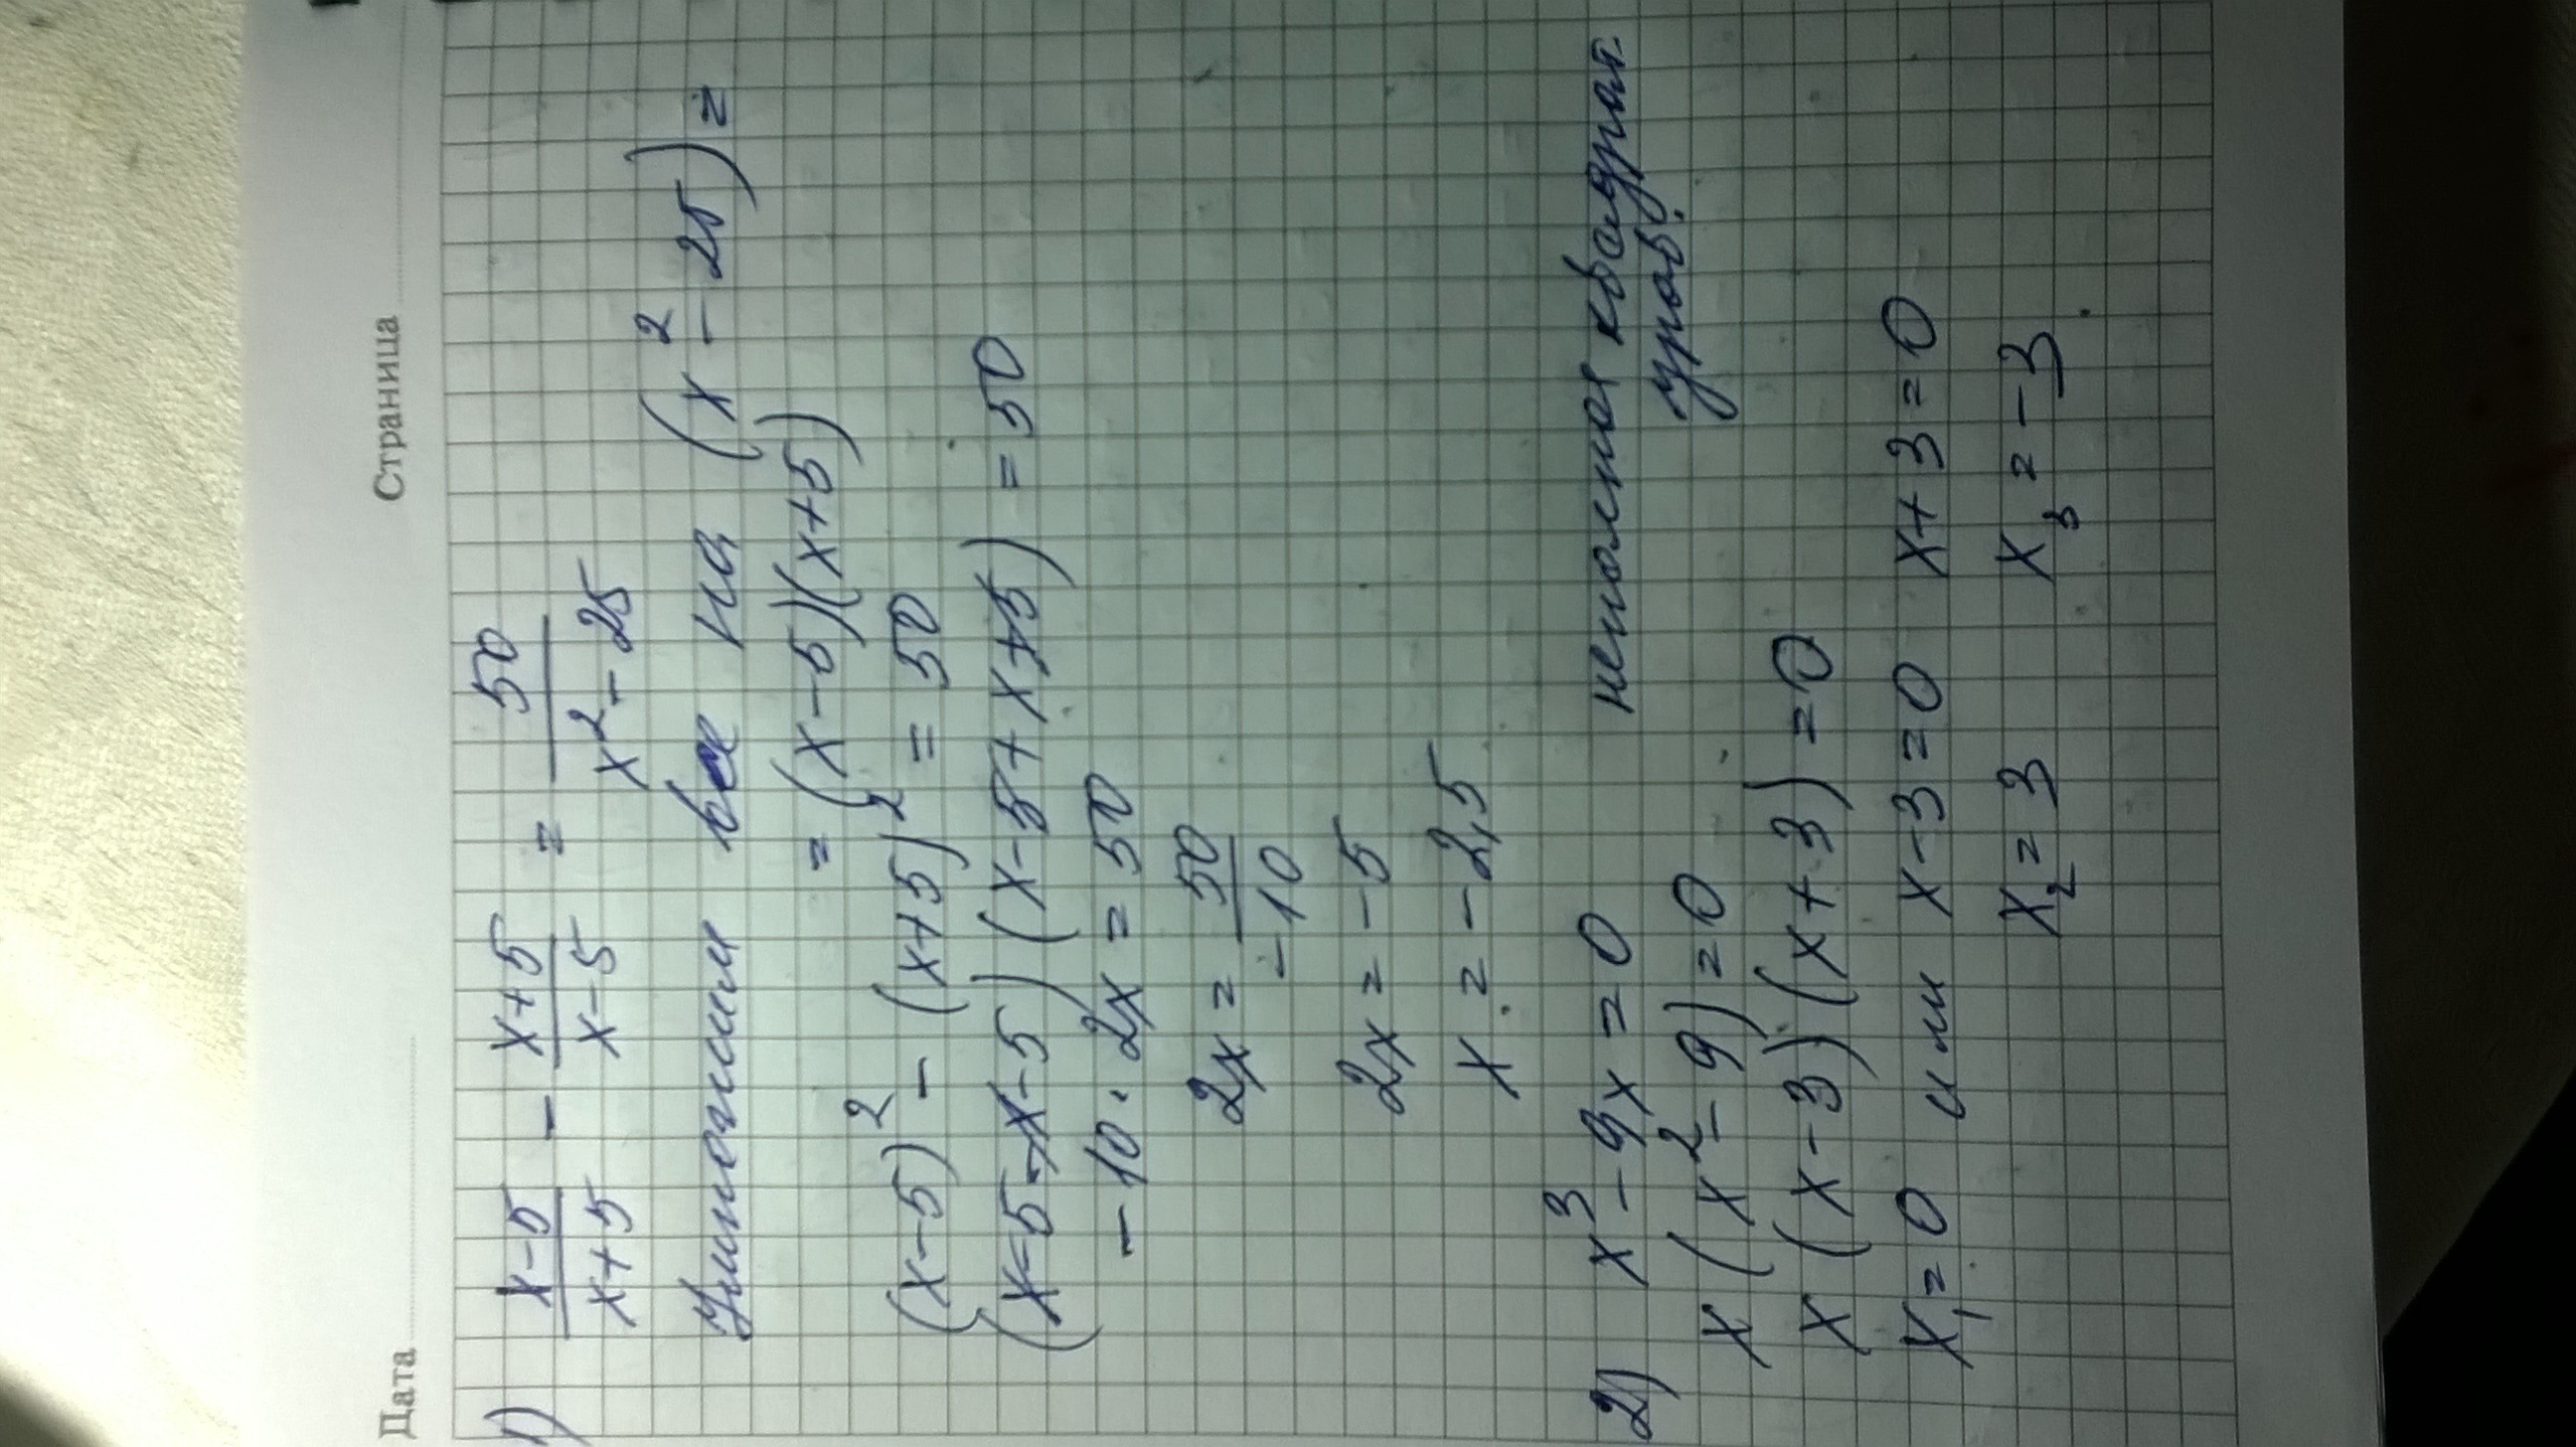 Дата Страница
1) (x-5)/(x+5) - (x+5)/(x-5) = 50/(x²-25)
Умножим все на (x²-25) =
= (x-5)(x+5)
(x-5)² - (x+5)² = 50
(x-5-x-5)(x-5+x+5) = 50
-10·2x = 50
2x = 50/-10
2x = -5
x = -2,5
2) x³-9x=0 неполное квадрат
урав.
x(x²-9)=0
x(x-3)(x+3)=0
x₁=0 или x-3=0 x+3=0
x₂=3 x₃=-3